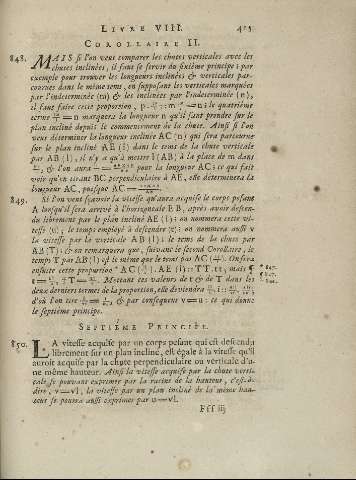 LIVRE VIII.
COROLLAIRE II.
848. MAIS si l'on veut comparer les chutes verticales avec les
chutes inclinées, il faut se servir du sixiéme principe ; par
exemple pour trouver les longueurs inclinées & verticales par-
courues dans le même tems, en supposant les verticales marquées
par l'indeterminée (m) & les inclinées par l'indeterminée (n),
il faut faire cette proportion,
terme = n marquera la longueur n qu'il faut prendre sur le
plan incliné depuis le commencement de la chute. Ainsi si l'on
veut déterminer la longueur inclinée AC (n) qui sera parcourue
sur le plan incliné AE (i) dans le tems de la chute verticale
par AB (l), il n'y a qu'à mettre l (AB) à la place de m dans
& l'on aura pour la longueur AC ; ce qui fait
voir qu'en tirant BC perpendiculaire à AE, elle déterminera la
longueur AC, puisque AC =
849. Si l'on veut sçavoir la vitesse qu'aura acquise le corps pesant
A lorsqu'il sera arrivé à l'horizontale EB, après avoir descen-
du librement par le plan incliné AE (i) on nommera cette vi-
tesse (u), le temps employé à descendre (t) ; on nommera aussi v
la vitesse par la verticale AB (l) ; le tems de la chute par
AB (T) ; & on remarquera que, suivant le second Corollaire, le
temps T par AB (l) est le même que le tems par AC. On fera
ensuite cette proportion AC . AE (i) :: TT . tt ; mais
Mettant ces valeurs de t & de T dans les
deux derniers termes de la proportion, elle deviendra
d'où l'on tire & par consequent v = u : ce qui donne
le septiéme principe.
SEPTIÉME PRINCIPE.
850. LA vitesse acquise par un corps pesant qui est descendu
librement sur un plan incliné, est égale à la vitesse qu'il
auroit acquise par la chute perpendiculaire ou verticale d'u-
ne même hauteur. Ainsi la vitesse acquise par la chute verti-
cale se pouvant exprimer par la racine de la hauteur, c'est-à-
dire, v = √l, la vitesse par un plan incliné de la même hau-
teur se pourra aussi exprimer par u = √l.
Fff iij